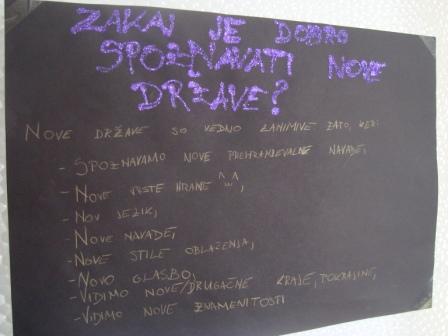 ZAKAJ JE DOBRO
SPOZNAVATI NOVE
DRŽAVE?
NOVE DRŽAVE SO VEDNO ZANIMIVE ZATO, KER:
- SPOZNAVAMO NOVE PREHRANJEVALNE NAVADE,
- NOVE VRSTE HRANE ^_^,
- NOV JEZIK,
- NOVE NAVADE,
- NOVE STILE OBLAČENJA,
- NOVO GLASBO,
- VIDIMO NOVE/DRUGAČNE KRAJE, POKRAJINE,
- VIDIMO NOVE ZNAMENITOSTI